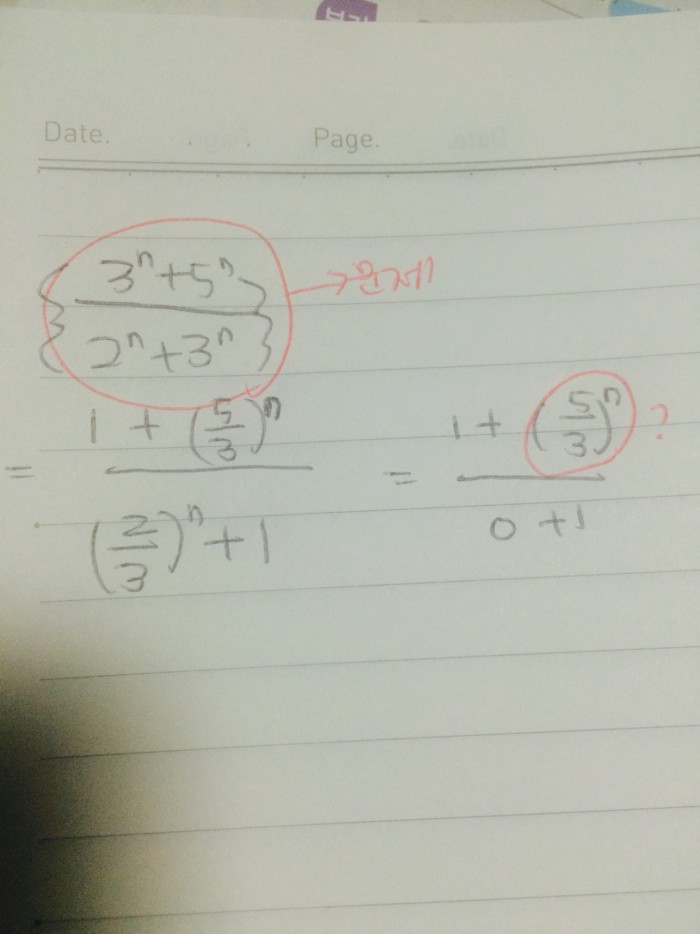 Date. Page.
{ (3ⁿ+5ⁿ)/(2ⁿ+3ⁿ) } → 문제
= (1 + (5/3)ⁿ)/((2/3)ⁿ + 1) = (1 + (5/3)ⁿ)/(0 + 1) ?